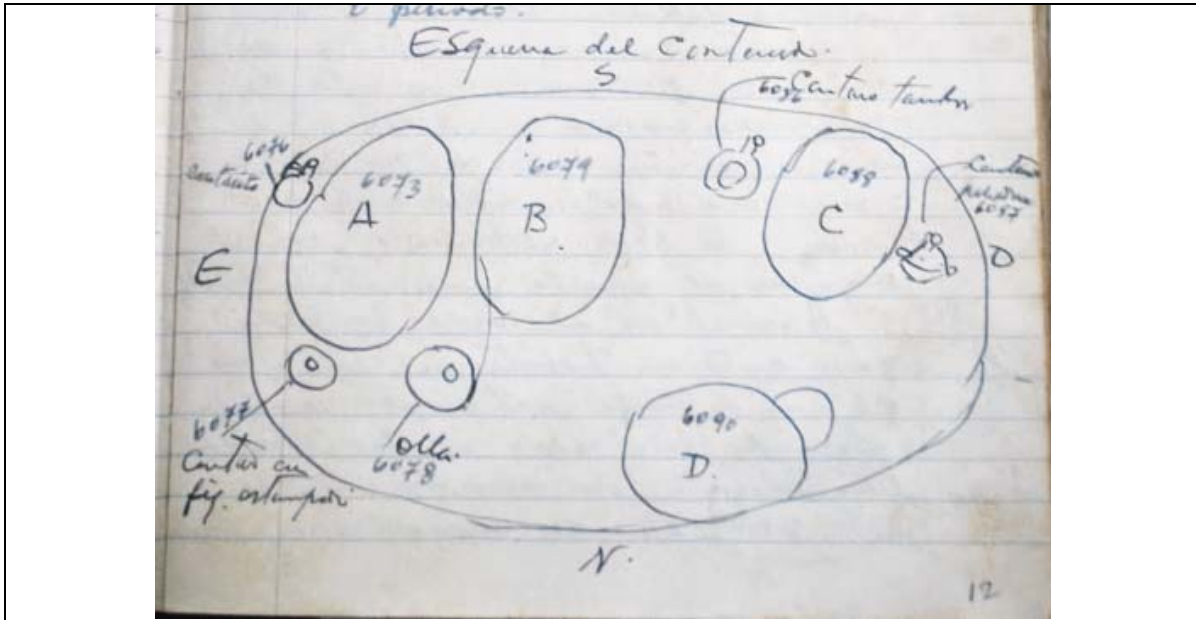 2 período.
Esquema del Contenido.
S
Cantaro tambor
6076
6086
cantarito
6073
A
6079
B
6088
C
Cantaro
6087
E
O
6077
Cantaro con
fig. estampada
olla.
6078
6090
D.
N.
12